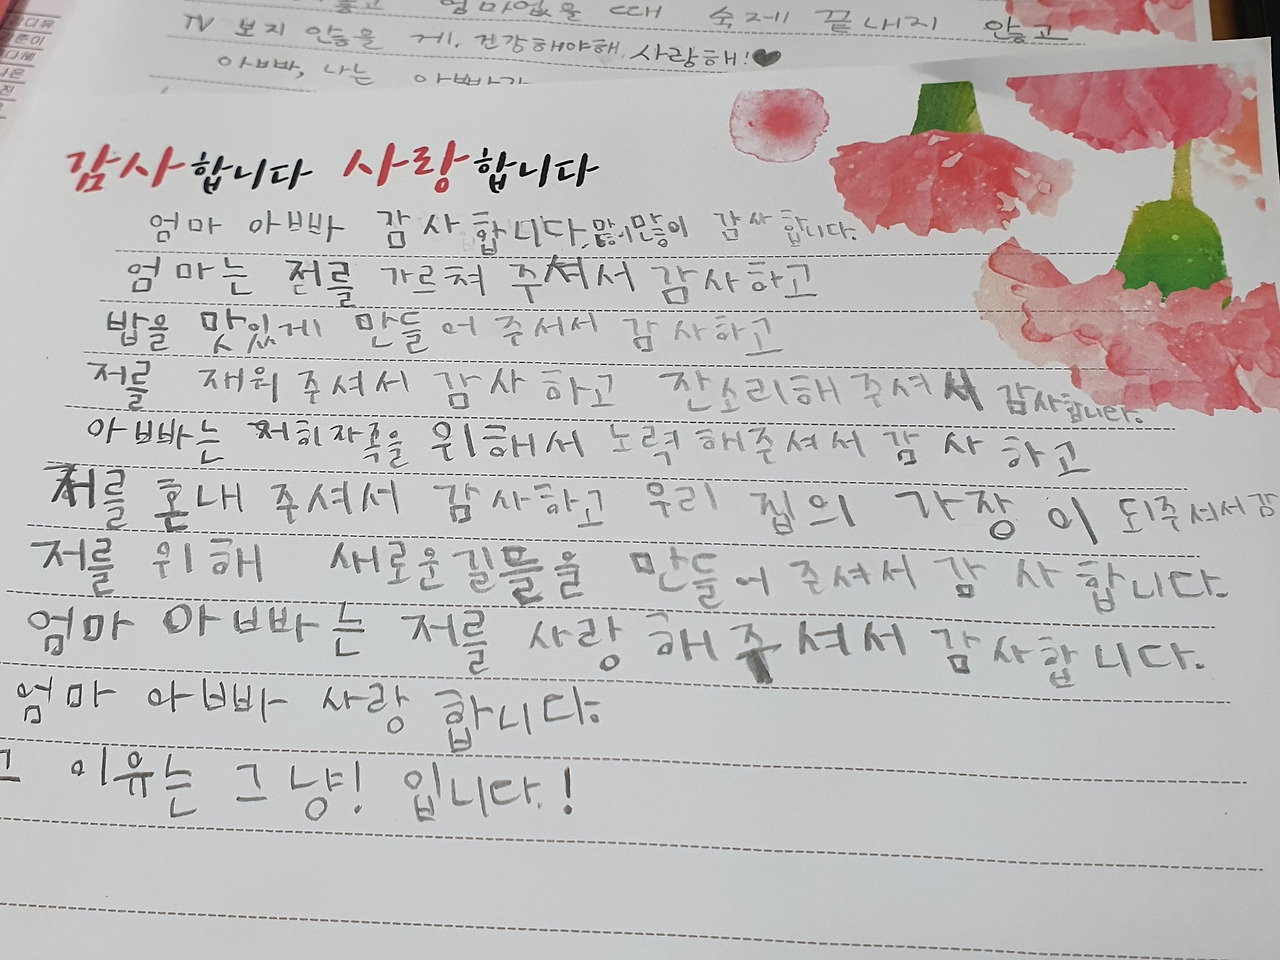 엄마없을 때 숙제 끝내지 않고
TV 보지 안을 게. 건강해야해. 사랑해!♥
아빠, 나는 아빠가
감사합니다 사랑합니다
엄마 아빠 감사합니다. 많이많이 감사합니다.
엄마는 저를 가르쳐 주셔서 감사하고
밥을 맛있게 만들어 주셔서 감사하고
저를 재워 주셔서 감사하고 잔소리해 주셔서 감사합니다.
아빠는 저희가족을 위해서 노력해주셔서 감사하고
저를 혼내 주셔서 감사하고 우리 집의 가장 이 되주셔서 감
저를 위해 새로운길뜰을 만들어 주셔서 감사합니다.
엄마 아빠는 저를 사랑해 주셔서 감사합니다.
엄마 아빠 사랑합니다.
그 이유는 그냥! 입니다.!